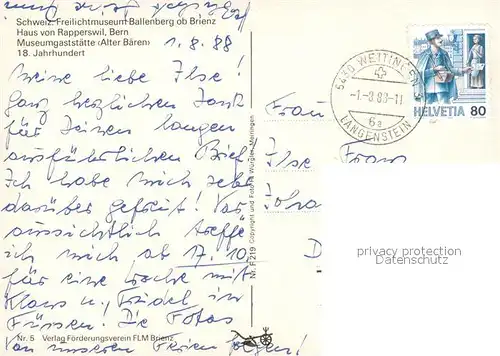 Schweiz. Freilichtmuseum Ballenberg ob Brienz
Haus von Rapperswil, Bern
Museumgaststätte ‹Alter Bären›
18. Jahrhundert
1. 8. 88
Meine liebe Ilse!
Ganz herzlichen Dank
für Deinen langen
ausführlichen Brief.
Ich habe mich sehr
darüber gefreut! Vor-
aussichtlich treffe
ich mich ab 17.10
für eine Woche mit
Klaus u. Friedel in
Füssen. Die Fotos
von unseren Ferien folgen!
Nr. 5 Verlag Förderungsverein FLM Brienz
Nr. R 219 Copyright und Foto: Würgler, Meiringen
5430 WETTINGEN
-1.-8.88-11
6a
LANGENSTEIN
HELVETIA 80
Frau
Ilse Frans
Joha
D
privacy protection
DARMSVERL